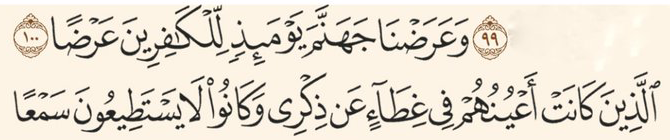 ٩٩ وَعَرَضْنَا جَهَنَّمَ يَوْمَئِذٍ لِّلْكَٰفِرِينَ عَرْضًا ١٠٠
ٱلَّذِينَ كَانَتْ أَعْيُنُهُمْ فِى غِطَآءٍ عَن ذِكْرِى وَكَانُوا۟ لَا يَسْتَطِيعُونَ سَمْعًا